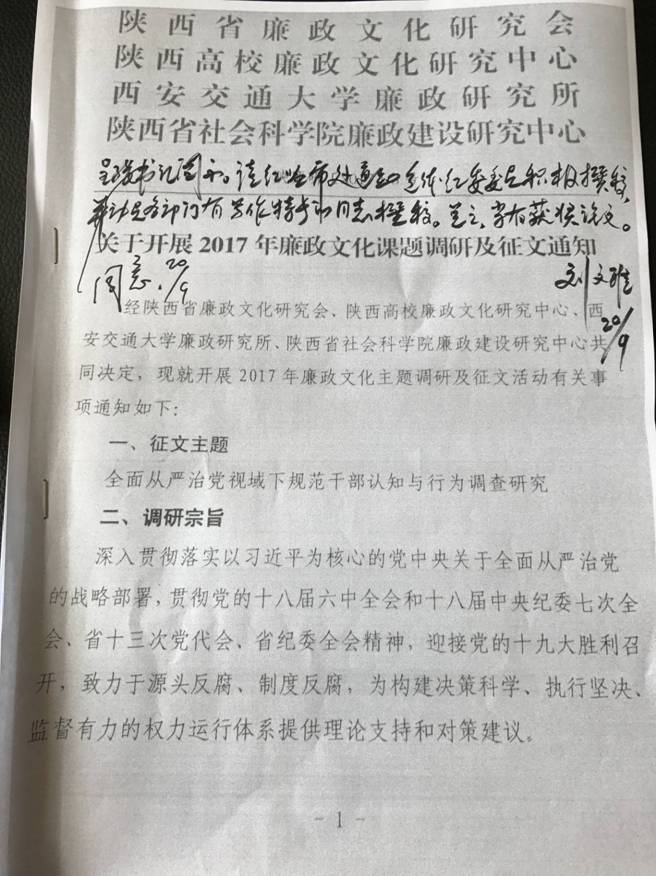 陕西省廉政文化研究会
陕西高校廉政文化研究中心
西安交通大学廉政研究所
陕西省社会科学院廉政建设研究中心
书记阅示。请纪监审处通知全体纪委委员积极撰稿,
并动员各部门有工作特长的同志撰稿。
关于开展2017年廉政文化课题调研及征文通知
同意. 20/9
刘文雅
20/9
经陕西省廉政文化研究会、陕西高校廉政文化研究中心、西
安交通大学廉政研究所、陕西省社会科学院廉政建设研究中心共
同决定,现就开展2017年廉政文化主题调研及征文活动有关事
项通知如下:
一、征文主题
全面从严治党视域下规范干部认知与行为调查研究
二、调研宗旨
深入贯彻落实以习近平为核心的党中央关于全面从严治党
的战略部署,贯彻党的十八届六中全会和十八届中央纪委七次全
会、省十三次党代会、省纪委全会精神,迎接党的十九大胜利召
开,致力于源头反腐、制度反腐,为构建决策科学、执行坚决、
监督有力的权力运行体系提供理论支持和对策建议。
- 1 -